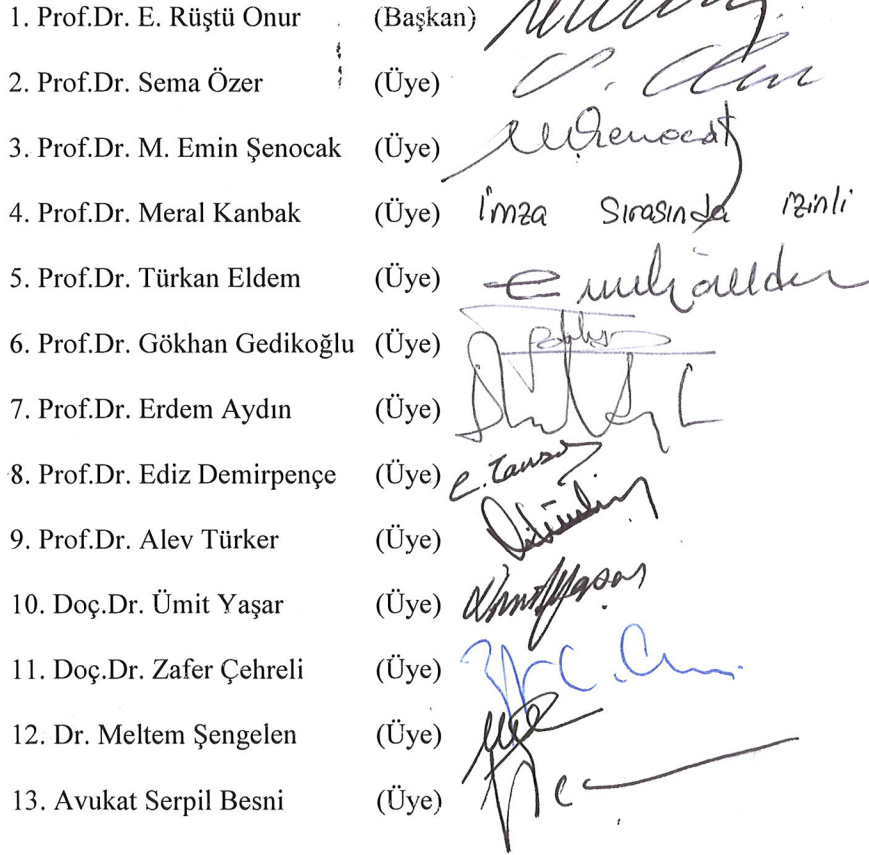 1. Prof.Dr. E. Rüştü Onur (Başkan)
2. Prof.Dr. Sema Özer (Üye)
3. Prof.Dr. M. Emin Şenocak (Üye)
4. Prof.Dr. Meral Kanbak (Üye) İmza Sırasında izinli
5. Prof.Dr. Türkan Eldem (Üye)
6. Prof.Dr. Gökhan Gedikoğlu (Üye)
7. Prof.Dr. Erdem Aydın (Üye)
8. Prof.Dr. Ediz Demirpençe (Üye)
9. Prof.Dr. Alev Türker (Üye)
10. Doç.Dr. Ümit Yaşar (Üye)
11. Doç.Dr. Zafer Çehreli (Üye)
12. Dr. Meltem Şengelen (Üye)
13. Avukat Serpil Besni (Üye)